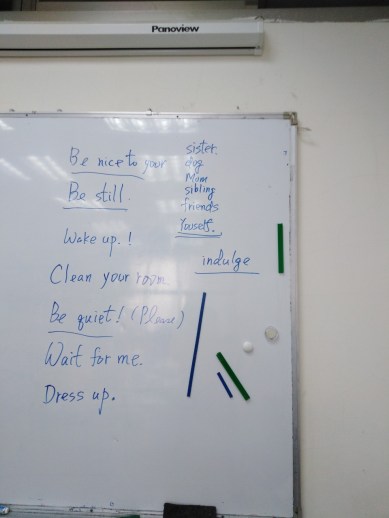 Panoview
Be nice to your
sister.
dog
Mom
sibling
friends
Youself.
Be still.
Wake up. !
indulge
Clean your room
Be quiet! (Please)
Wait for me.
Dress up.